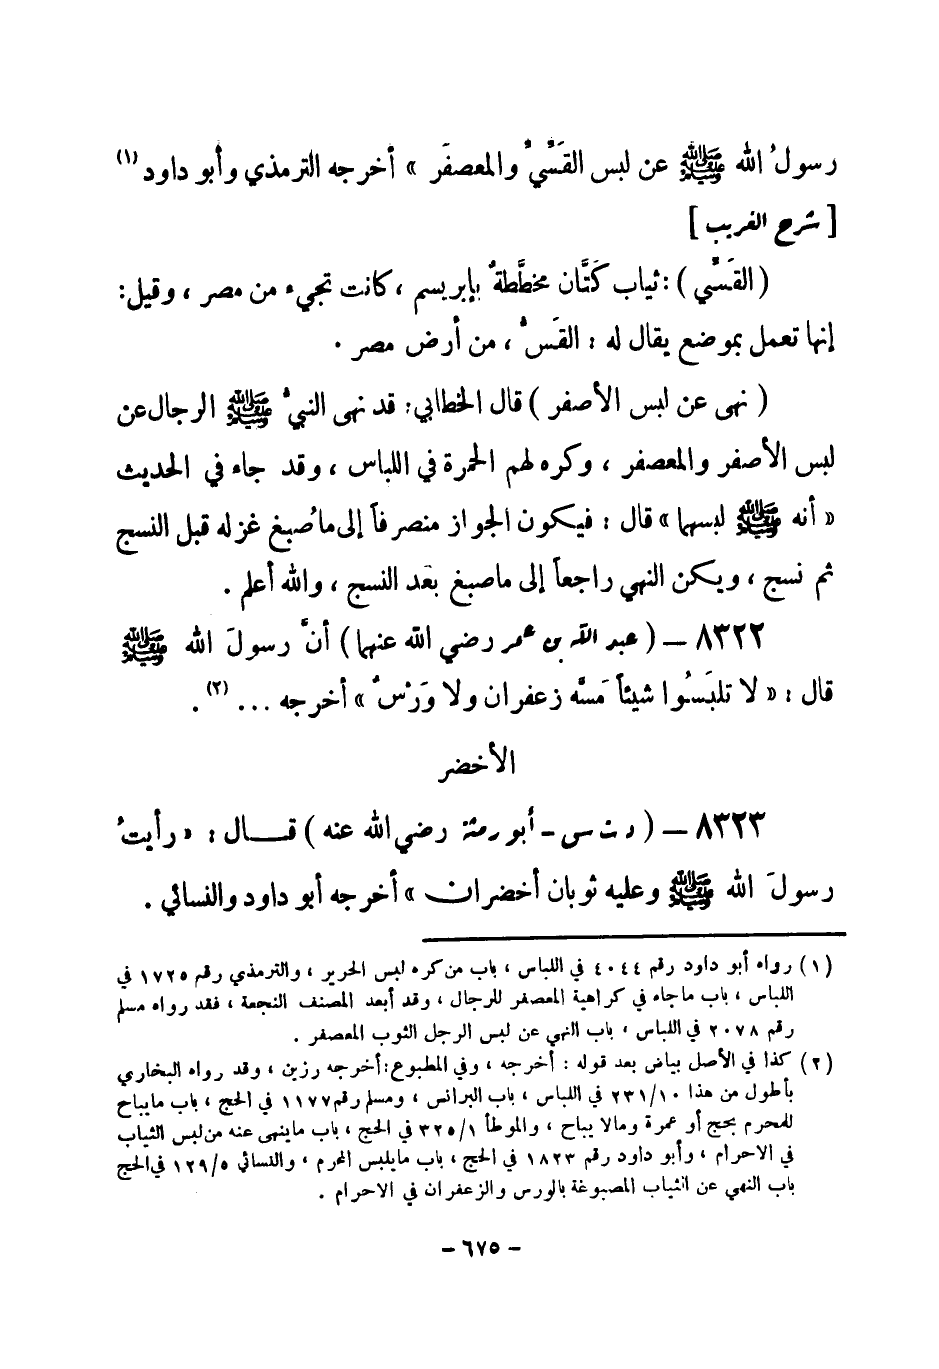 رسولُ الله ﷺ عن لبس القَسِّيِّ والمعصفَر » أخرجه الترمذي وأبو داود (١)
[ شرح الغريب ]
( القَسِّي ) : ثياب كَتَّان مخطَّطةٌ بإبريسم ، كانت تجيء من مصر ، وقيل :
إنها تعمل بموضع يقال له : القَسُّ ، من أرض مصر .
( نهى عن لبس الأصفر ) قال الخطابي : قد نهى النبيُّ ﷺ الرجال عن
لبس الأصفر والمعصفر ، وكره لهم الحمرة في اللباس ، وقد جاء في الحديث
« أنه ﷺ لبسها » قال : فيكون الجواز منصرفاً إلى ما صُبغ غزله قبل النسج
ثم نسج ، ويكن النهي راجعاً إلى ما صبغ بعد النسج ، والله أعلم .
٨٣٢٢ – ( عبد الله بن عمر رضي الله عنهما ) أنَّ رسولَ الله ﷺ
قال : « لا تلبَسُوا شيئاً مَسَّه زعفران ولا وَرْسٌ » أخرجه ... (٢) .
الأخضر
٨٣٢٣ – ( د ت س - أبو رمثة رضي الله عنه ) قـــال : « رأيتُ
رسولَ الله ﷺ وعليه ثوبان أخضران » أخرجه أبو داود والنسائي .
(١) رواه أبو داود رقم ٤٠٤٤ في اللباس ، باب من كره لبس الحرير ، والترمذي رقم ١٧٢٥ في
اللباس ، باب ما جاء في كراهية المعصفر للرجال ، وقد أبعد المصنف النجعة ، فقد رواه مسلم
رقم ٢٠٧٨ في اللباس ، باب النهي عن لبس الرجل الثوب المعصفر .
(٢) كذا في الأصل بياض بعد قوله : أخرجه ، وفي المطبوع : أخرجه رزين ، وقد رواه البخاري
بأطول من هذا ٢٣١/١٠ في اللباس ، باب البرانس ، ومسلم رقم ١١٧٧ في الحج ، باب ما يباح
للمحرم بحج أو عمرة ومالا يباح ، والموطأ ٣٢٥/١ في الحج ، باب ما ينهى عنه من لبس الثياب
في الاحرام ، وأبو داود رقم ١٨٢٣ في الحج ، باب ما يلبس المحرم ، والنسائي ١٢٩/٥ في الحج
باب النهي عن الثياب المصبوغة بالورس والزعفران في الاحرام .
– ٦٧٥ –